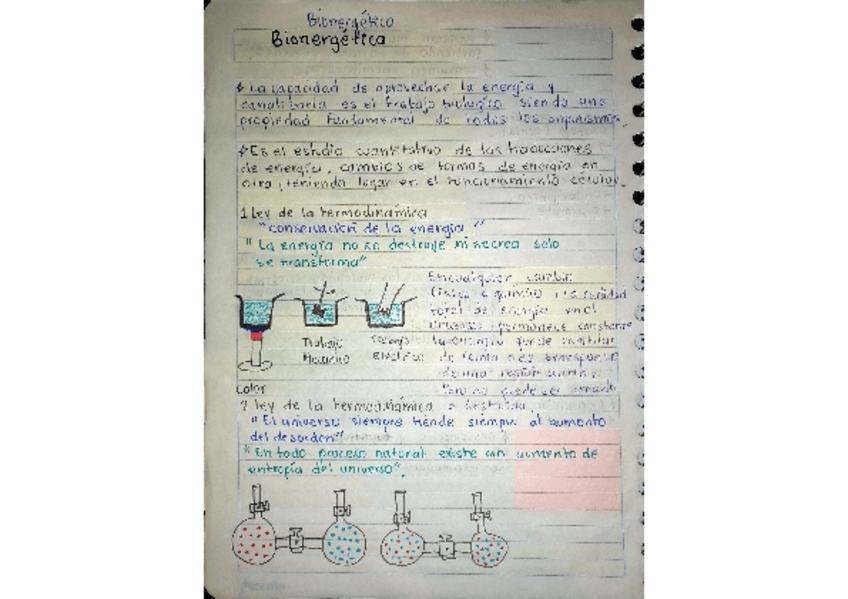 Bionergética
Bionergética
La capacidad de aprovechar la energía y
canalizarla es el trabajo biologico siendo una
propiedad fundamental de todos los organismos.
Es el estudio cuantitativo de las traducciones
de energía, cambios de formas de energía en
otra, teniendo lugar en el funcionamiento célular.
1 Ley de la termodinámica
"conservación de la energía"
"La energía no se destruye ni se crea solo
se transforma"
En cualquier cambio
físico o químico, la cantidad
total de energía en el
universo permanece constante
la energía puede cambiar
de forma o
de una región a otra,
Pero no puede ser
o destruida.
Trabajo
Mecanico
Trabajo
Electrico
Calor
2 ley de la termodinámica
"El universo siempre tiende siempre al aumento
del desorden"
"En todo proceso natural existe un aumento de
entropía del universo".